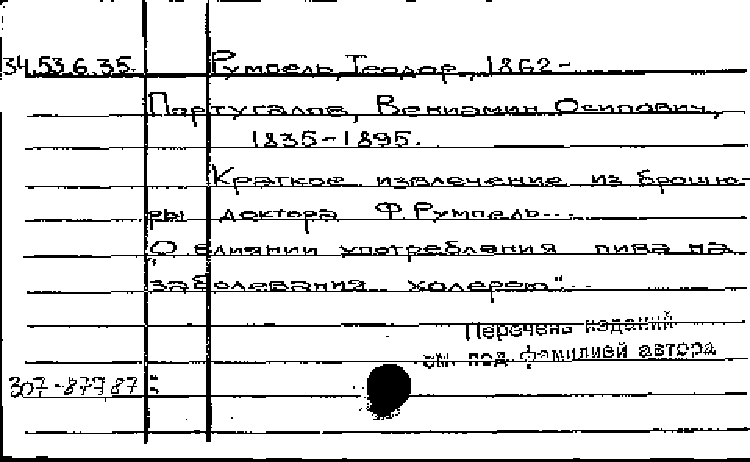 34.53.6.35. Румпель, Теодор, 1862-
Португалов, Вениамин Осипович,
1835-1895.
Краткое извлечение из брошю-
ры доктора Ф.Румпель...
"О влиянии употребления пива на
заболевания холерою".
Перечень изданий
см. под фамилией автора
307-87987